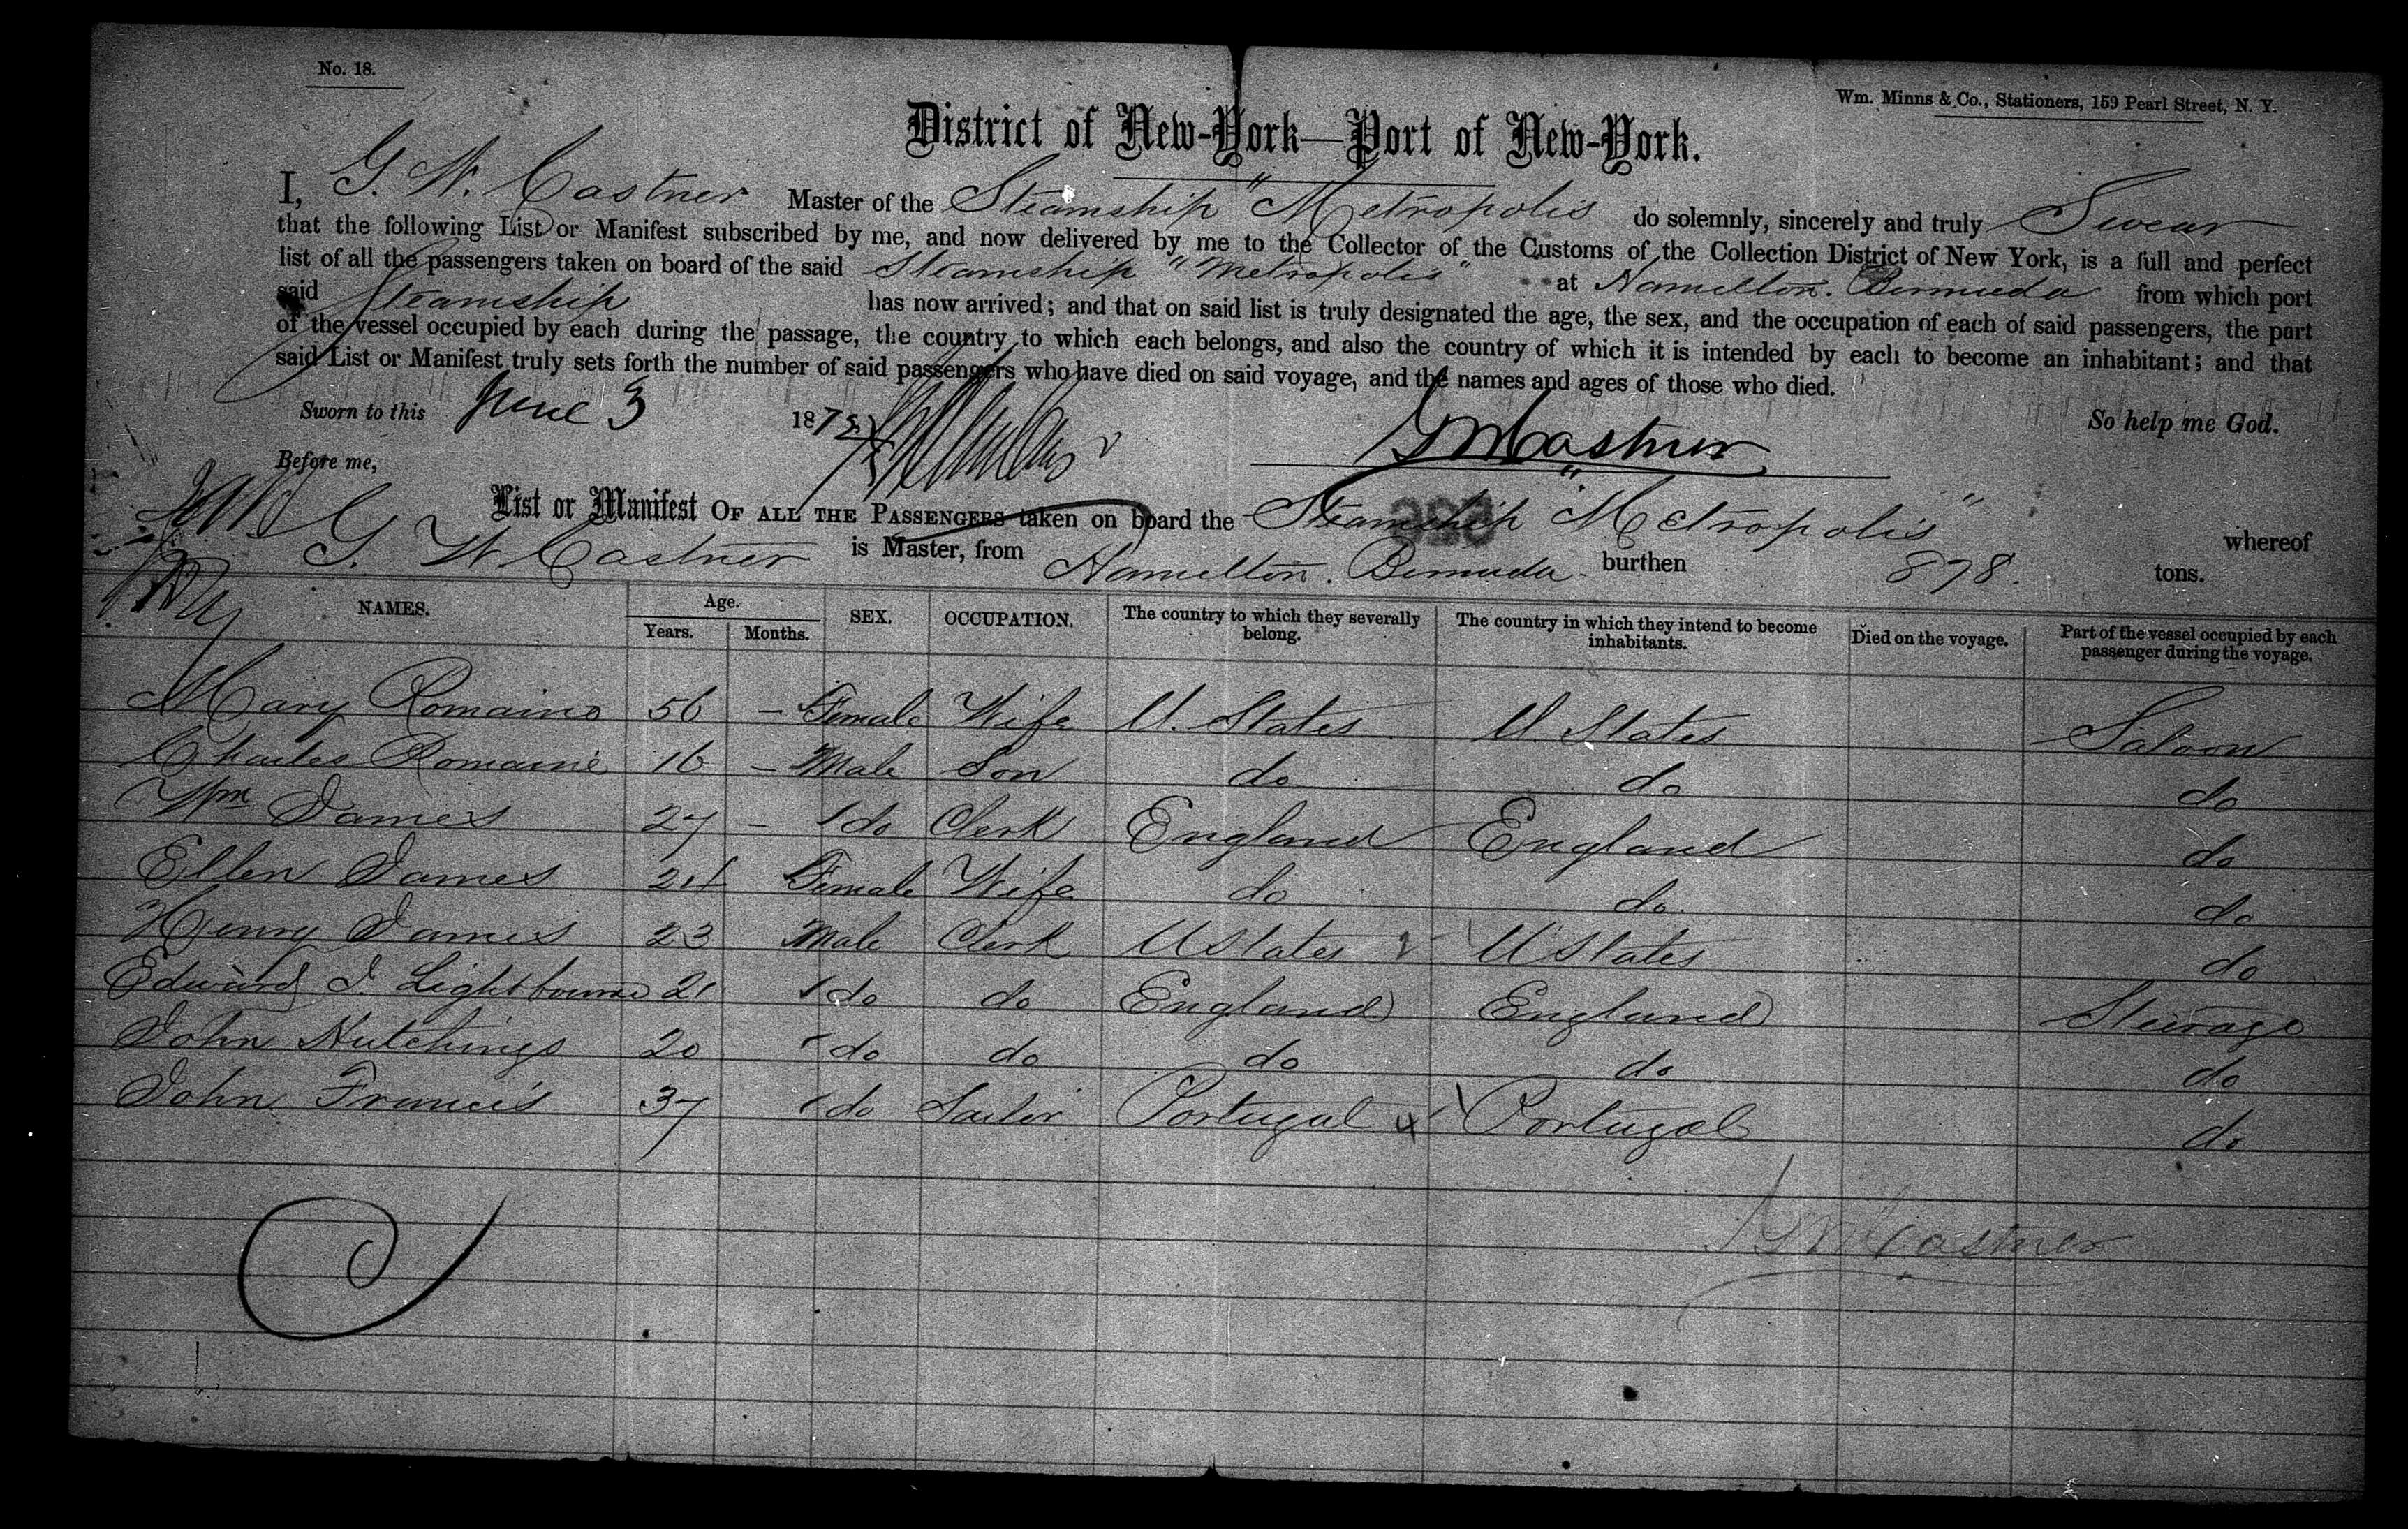 No. 18.
Wm. Minns & Co., Stationers, 159 Pearl Street, N. Y.
District of New-York—Port of New-York.
I, G. W. Castner Master of the Steamship "Metropolis do solemnly, sincerely and truly Swear
that the following List or Manifest subscribed by me, and now delivered by me to the Collector of the Customs of the Collection District of New York, is a full and perfect
list of all the passengers taken on board of the said Steamship "Metropolis" at Hamilton. Bermuda from which port
said Steamship has now arrived; and that on said list is truly designated the age, the sex, and the occupation of each of said passengers, the part
of the vessel occupied by each during the passage, the country to which each belongs, and also the country of which it is intended by each to become an inhabitant; and that
said List or Manifest truly sets forth the number of said passengers who have died on said voyage, and the names and ages of those who died.
So help me God.
Sworn to this June 3 187
GWCastner
Before me,
List or Manifest OF ALL THE PASSENGERS taken on board the Steamship "Metropolis" whereof
G. W Castner is Master, from Hamilton. Bermuda burthen 878. tons.
NAMES. Age. Years. Months. SEX. OCCUPATION. The country to which they severally belong. The country in which they intend to become inhabitants. Died on the voyage. Part of the vessel occupied by each passenger during the voyage.
Mary Romaine 56 – Female Wife U. States U States Saloon
Charles Romaine 16 – Male Son do do do
Wm James 27 – do Clerk England England do
Ellen James 21 Female Wife do do do
Henry James 23 Male Clerk U States U States do
Edward J. Lightbourne 21 do do England England Steerage
John Hutchings 20 do do do do do
John Francis 37 do Sailor Portugal Portugal do
GWCastner